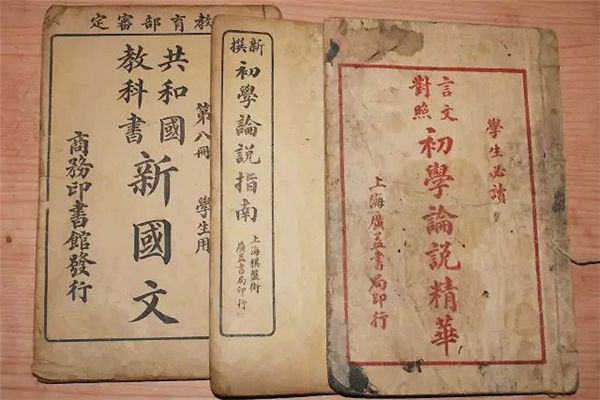 教育部審定
第八冊 學生用
共和國
教科書
新國文
商務印書館發行
新撰
初學論説指南
上海棋盤街
廣益書局印行
學生必讀
言文
對照
初學論説精華
上海廣益書局印行